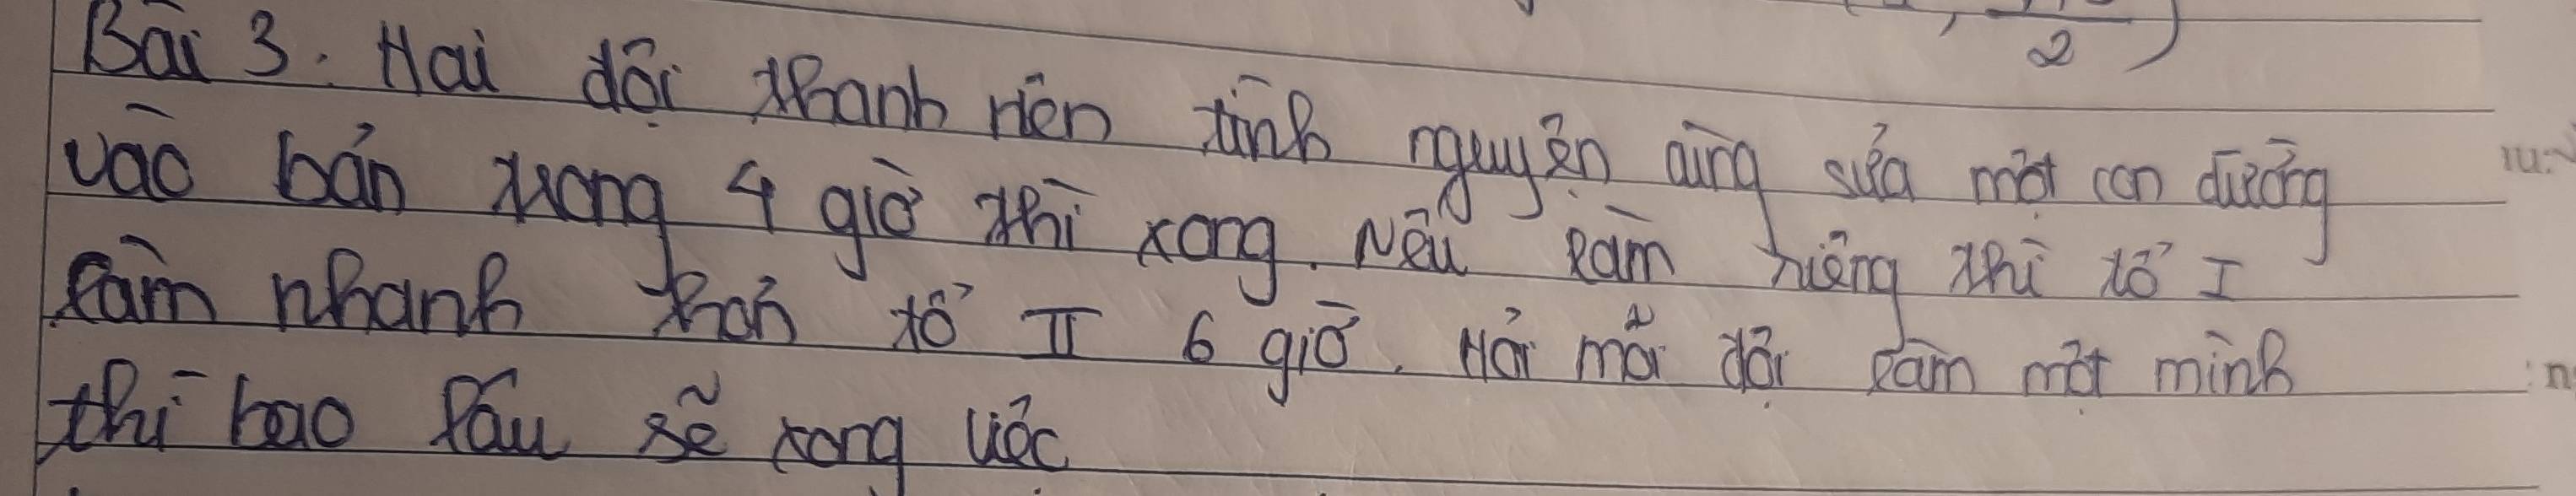 2
Bài 3. Hai đội thanh niên tình nguyện cùng sửa một con đường
vào bản trong 4 giờ thì xong. Nếu làm riêng thì tổ I
làm nhanh hơn tổ II 6 giờ. Hỏi mỗi đội làm một mình
thì bao lâu sẽ xong việc